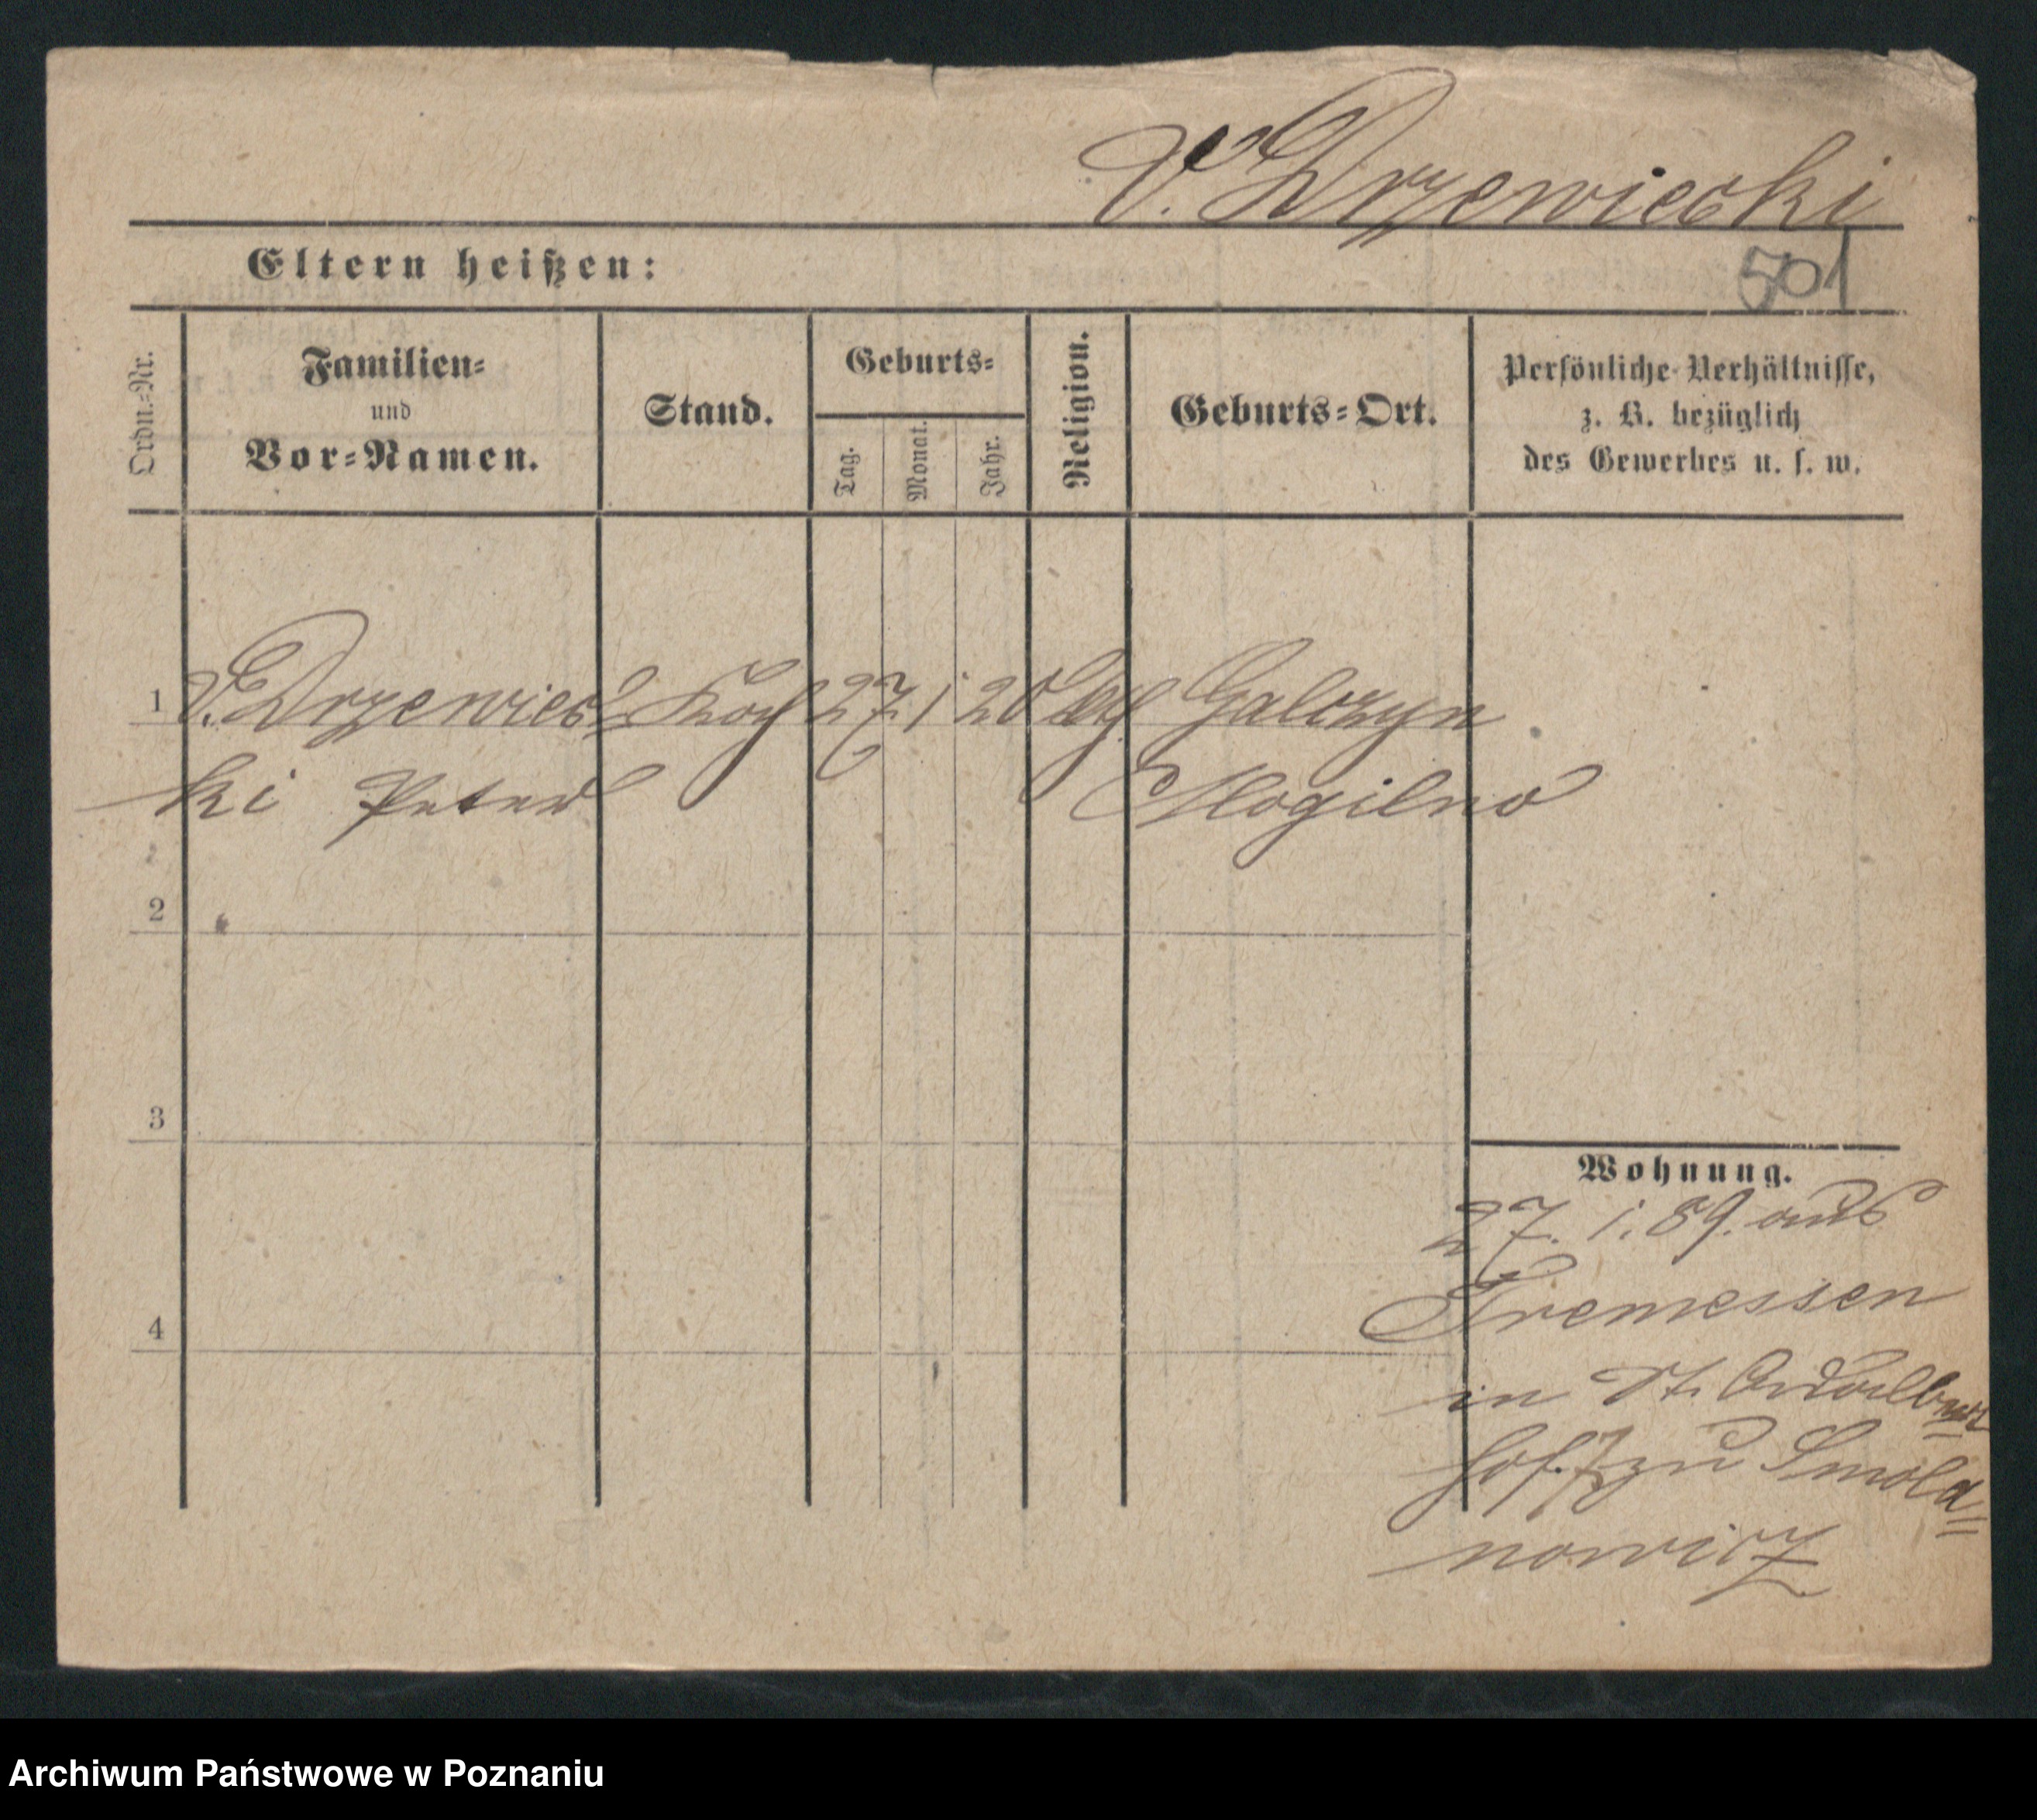 V. Drzewiecki
Eltern heißen:
501
Ordn.-Nr.
Familien-
und
Vor-Namen.
Stand.
Geburts-
Tag.
Monat.
Jahr.
Religion.
Geburts-Ort.
Persönliche Verhältnisse,
z. B. bezüglich
des Gewerbes u. s. w.
1 V. Drzewiec- Koch 27 1 20 Galczyn
ki Peter Mogilno
2
3
4
Wohnung.
27. 1. 89. aus
Tremessen
in St. Adalbert
7 zu Smola=
nowicz
Archiwum Państwowe w Poznaniu